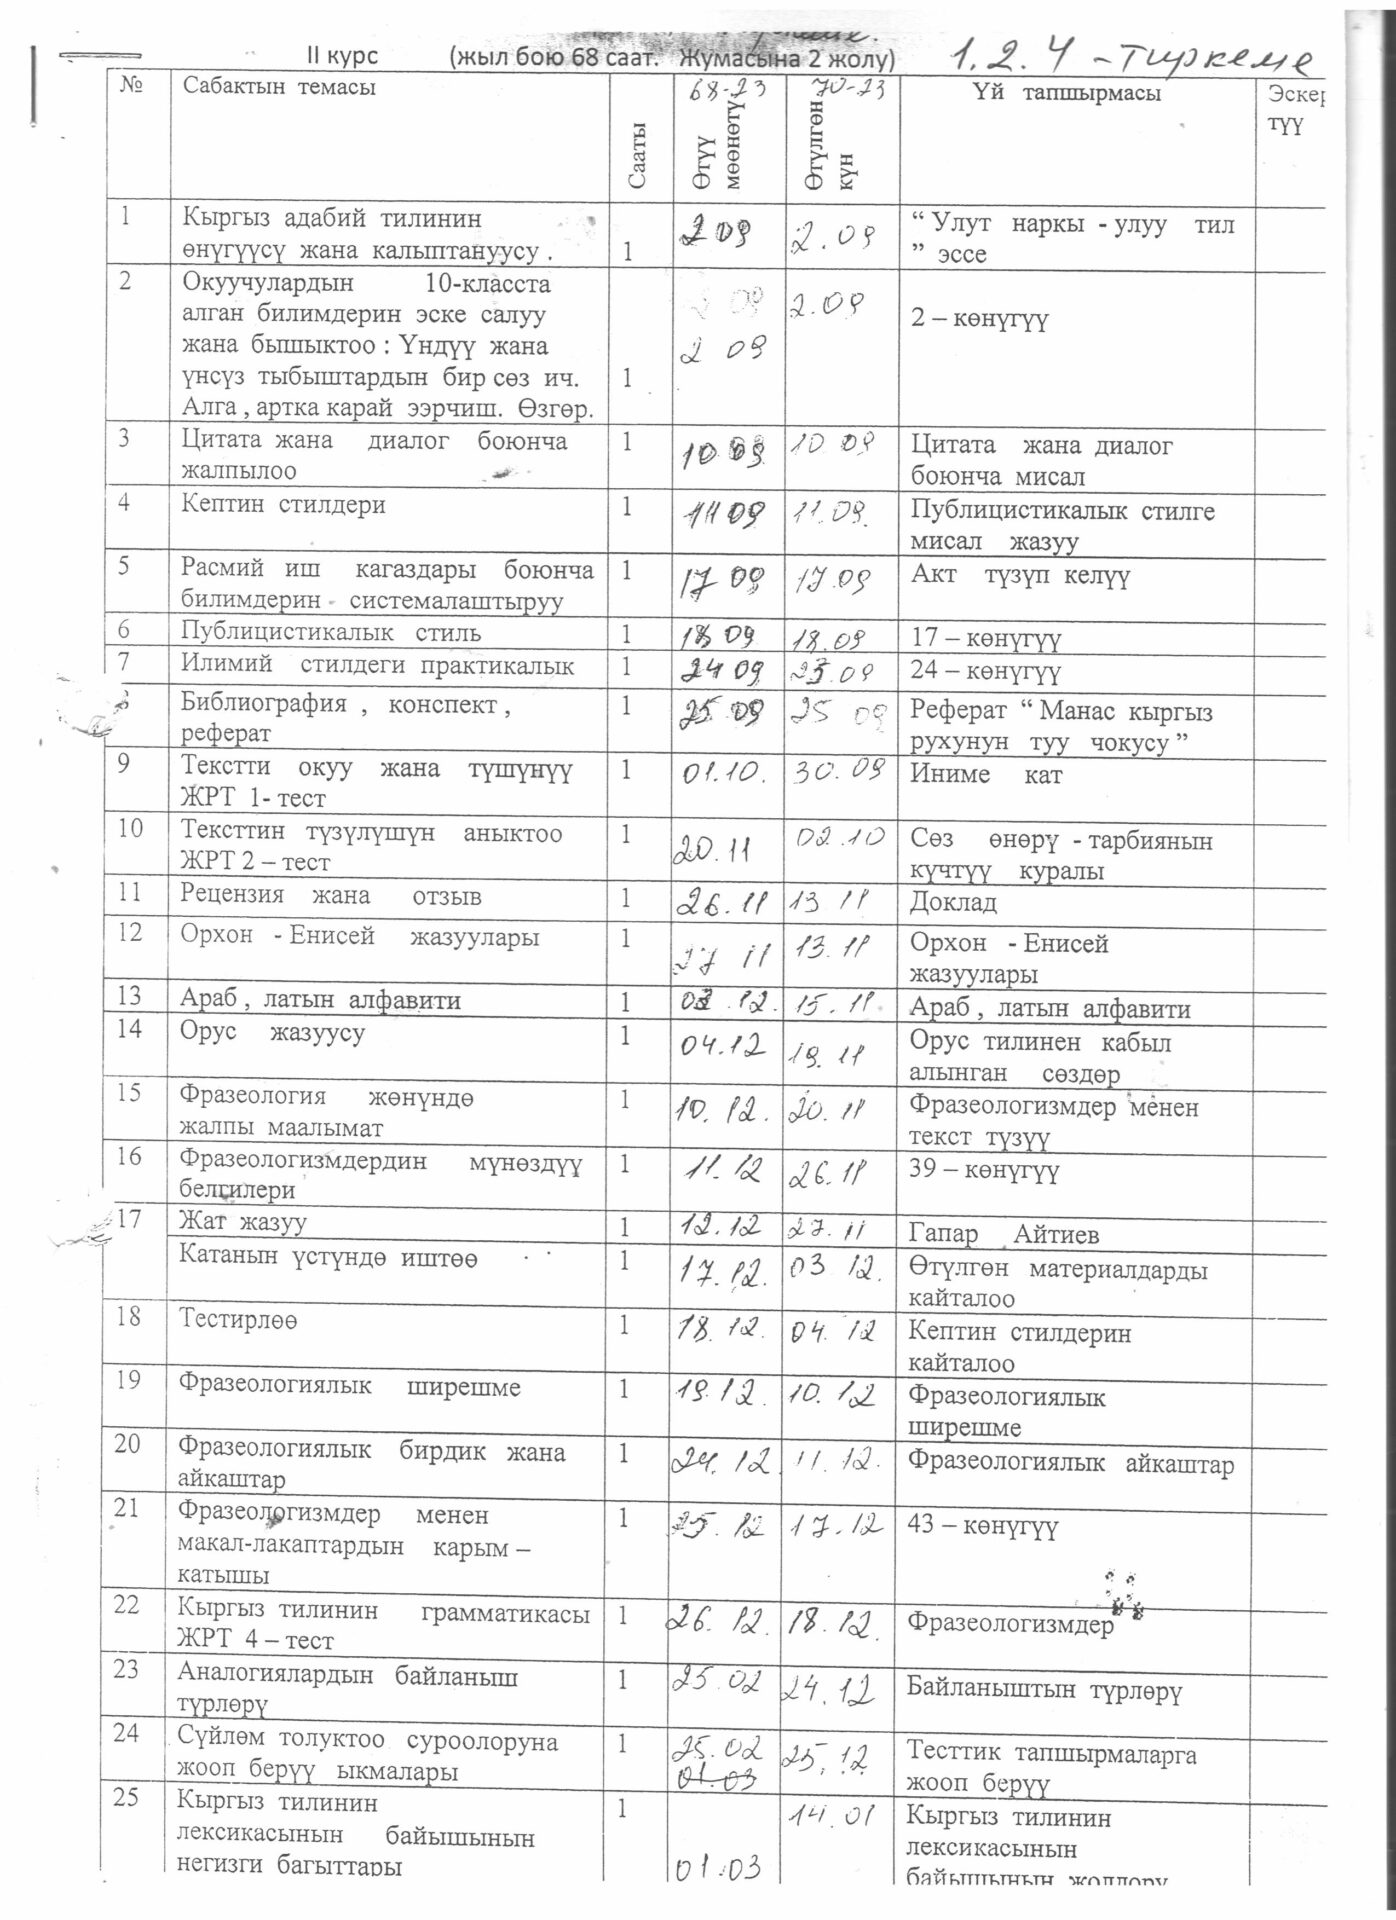 II курс (жыл бою 68 саат. Жумасына 2 жолу) 1.2.4 - тиркеме
№ Сабактын темасы Сааты 68-23 Өтүү мөөнөтү 70-23 Өтүлгөн күн Үй тапшырмасы Эскер
түү
1 Кыргыз адабий тилинин 2 09 2.09 “ Улут наркы - улуу тил
өнүгүүсү жана калыптануусу . 1 ” эссе
2 Окуучулардын 10-класста 2.09
алган билимдерин эске салуу 2 – көнүгүү
жана бышыктоо : Үндүү жана 2 09
үнсүз тыбыштардын бир сөз ич. 1
Алга , артка карай ээрчиш. Өзгөр.
3 Цитата жана диалог боюнча 1 10 09 10 09 Цитата жана диалог
жалпылоо боюнча мисал
4 Кептин стилдери 1 11 09 11.09. Публицистикалык стилге
мисал жазуу
5 Расмий иш кагаздары боюнча 1 17 09 17.09 Акт түзүп келүү
билимдерин системалаштыруу
6 Публицистикалык стиль 1 18 09 18.09 17 – көнүгүү
7 Илимий стилдеги практикалык 1 24 09 09 24 – көнүгүү
Библиография , конспект , 1 25.09 25 09 Реферат “ Манас кыргыз
реферат рухунун туу чокусу ”
9 Текстти окуу жана түшүнүү 1 01.10. 30.09 Иниме кат
ЖРТ 1- тест
10 Тексттин түзүлүшүн аныктоо 1 20.11 02.10 Сөз өнөрү - тарбиянын
ЖРТ 2 – тест күчтүү куралы
11 Рецензия жана отзыв 1 26.11 13 11 Доклад
12 Орхон - Енисей жазуулары 1 27 11 13.11 Орхон - Енисей
жазуулары
13 Араб , латын алфавити 1 .12. 15.11. Араб , латын алфавити
14 Орус жазуусу 1 04.12 19.11 Орус тилинен кабыл
алынган сөздөр
15 Фразеология жөнүндө 1 10.12. 20.11 Фразеологизмдер менен
жалпы маалымат текст түзүү
16 Фразеологизмдердин мүнөздүү 1 11.12 26.11 39 – көнүгүү
белгилери
17 Жат жазуу 1 12.12 27.11 Гапар Айтиев
Катанын үстүндө иштөө 1 17.12. 03 12. Өтүлгөн материалдарды
кайталоо
18 Тестирлөө 1 18.12. 04.12 Кептин стилдерин
кайталоо
19 Фразеологиялык ширешме 1 19.12. 10.12 Фразеологиялык
ширешме
20 Фразеологиялык бирдик жана 1 24.12 11.12. Фразеологиялык айкаштар
айкаштар
21 Фразеологизмдер менен 1 25.12 17.12 43 – көнүгүү
макал-лакаптардын карым –
катышы
22 Кыргыз тилинин грамматикасы 1 26.12. 18.12. Фразеологизмдер
ЖРТ 4 – тест
23 Аналогиялардын байланыш 1 25.02 24.12 Байланыштын түрлөрү
түрлөрү
24 Сүйлөм толуктоо суроолоруна 1 25.02 25.12. Тесттик тапшырмаларга
жооп берүү ыкмалары 01.03 жооп берүү
25 Кыргыз тилинин 1 14.01 Кыргыз тилинин
лексикасынын байышынын лексикасынын
негизги багыттары 01.03 байышынын жолдору